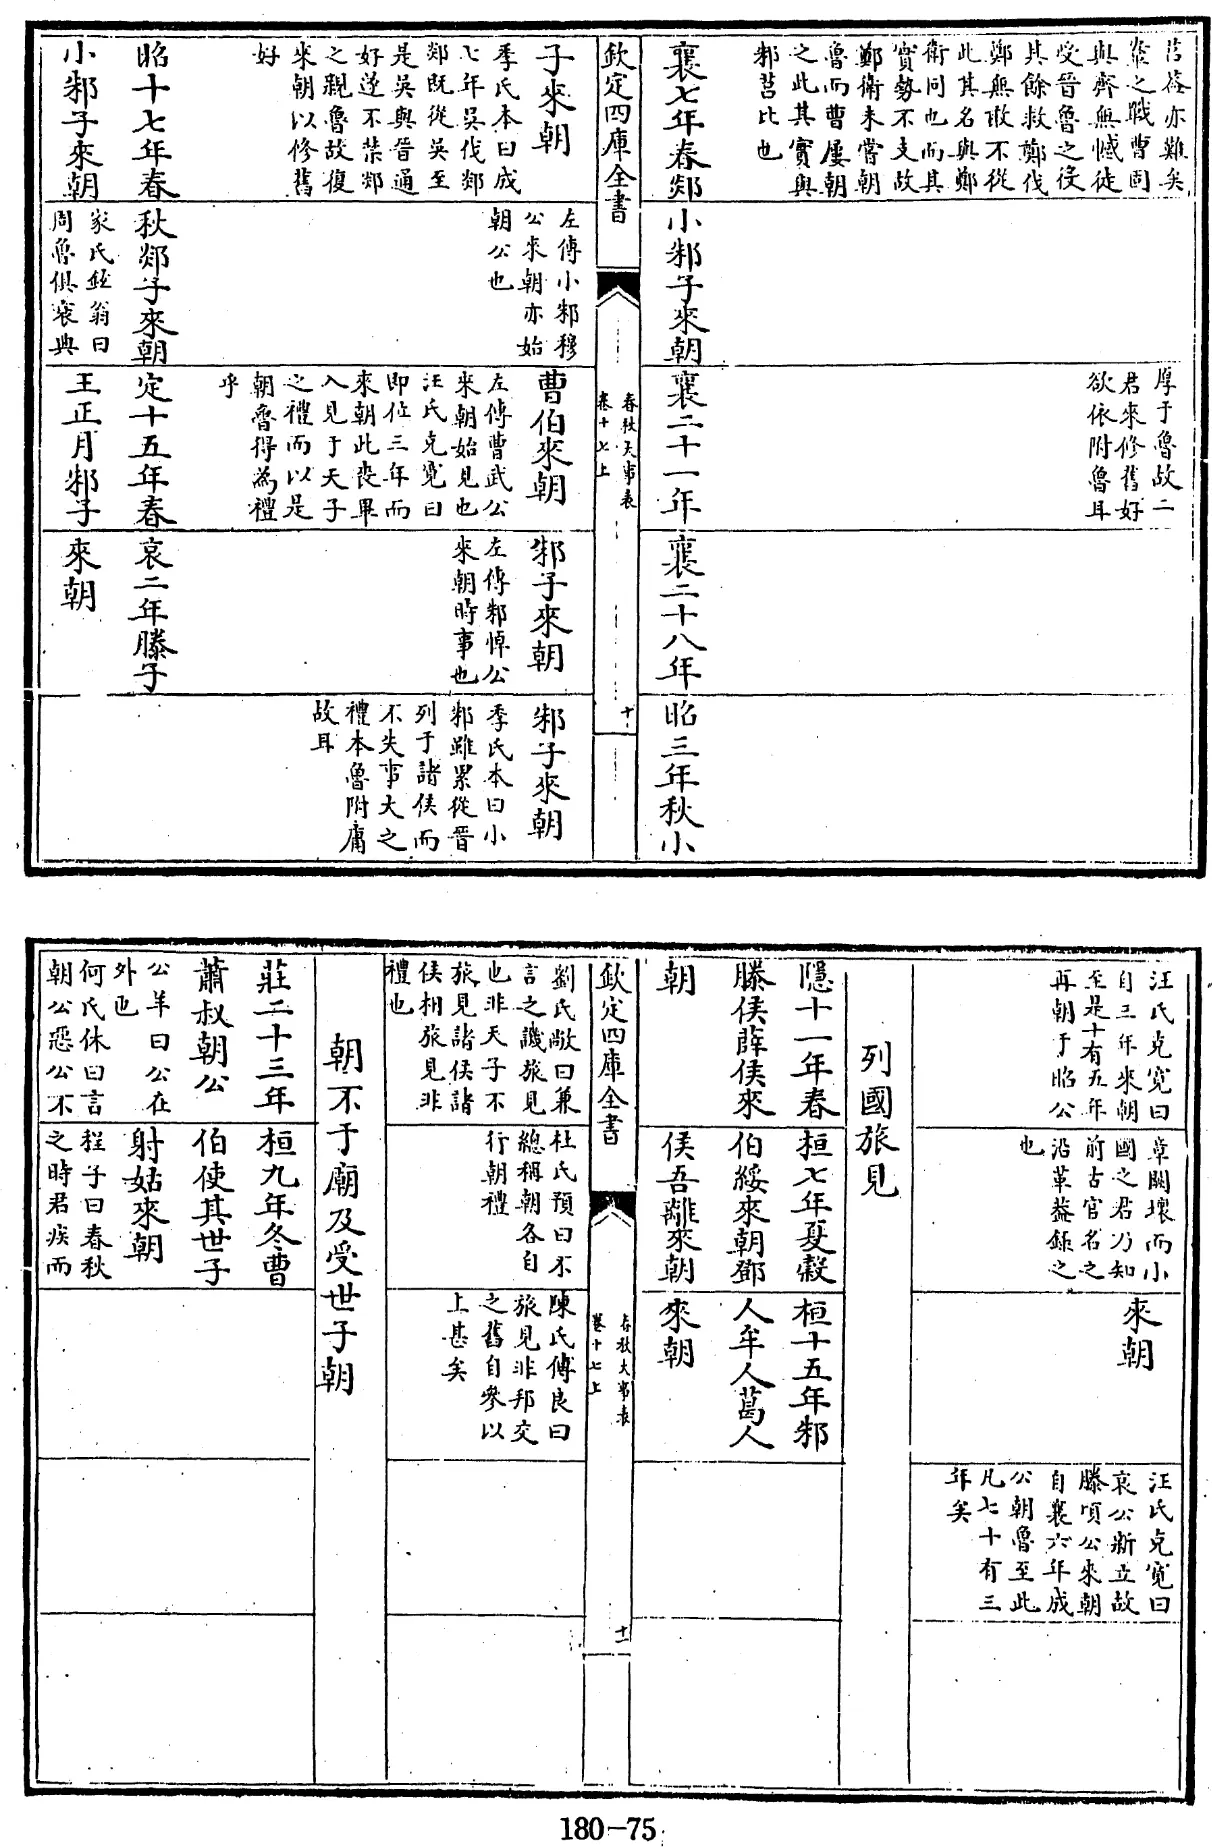 亦難矣
之職曹固
與齊無憾徒
受晉魯之役
其餘救鄭伐
鄭無敢不從
此其名與鄭
衛同也而其
實勢不支故
鄭衛未嘗朝
魯而曹屢朝
之此其實與
邾莒比也
襄七年春郯
小邾子來朝
厚于魯故二
君來修舊好
欲依附魯耳
襄二十一年
襄二十八年
昭三年秋小
欽定四庫全書
春秋大事表
卷十七上
十
子來朝
季氏本曰成
七年吳伐郯
郯既從吳至
是吳與晉通
好遂不禁郯
之親魯故復
來朝以修舊
好
昭十七年春
小邾子來朝
左傳小邾穆
公來朝亦始
朝公也
秋郯子來朝
家氏鉉翁曰
周魯俱衰典
曹伯來朝
左傳曹武公
來朝始見也
汪氏克寬曰
即位三年而
來朝此喪畢
入見于天子
之禮而以是
朝魯得為禮
乎
定十五年春
王正月邾子
邾子來朝
左傳邾悼公
來朝時事也
哀二年滕子
來朝
邾子來朝
季氏本曰小
邾雖累從晉
列于諸侯而
不失事大之
禮本魯附庸
故耳
汪氏克寬曰
自三年來朝
至是十有五年
再朝于昭公
章闕壞而小
國之君乃知
前古官名之
沿革蓋錄之
也
來朝
汪氏克寬曰
哀公新立故
滕頃公來朝
自襄六年成
公朝魯至此
凡七十有三
年矣
列國旅見
隱十一年春
滕侯薛侯來
朝
桓七年夏穀
伯綏來朝鄧
侯吾離來朝
桓十五年邾
人牟人葛人
來朝
欽定四庫全書
春秋大事表
卷十七上
十一
劉氏敞曰兼
言之譏旅見
也非天子不
旅見諸侯諸
侯相旅見非
禮也
杜氏預曰不
總稱朝各自
行朝禮
陳氏傅良曰
旅見非邦交
之舊自參以
上甚矣
朝不于廟及受世子朝
莊二十三年
蕭叔朝公
公羊曰公在
外也
何氏休曰言
朝公惡公不
桓九年冬曹
伯使其世子
射姑來朝
程子曰春秋
之時君疾而
180-75